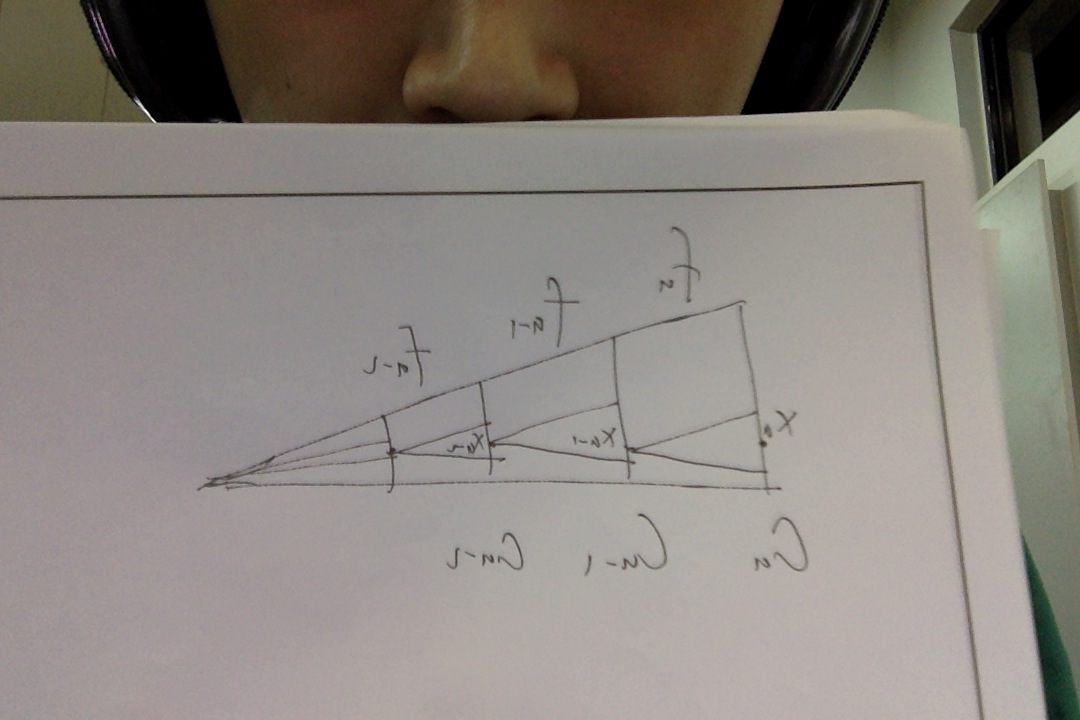 fn
fn-1
fn-2
x
xn-1
xn-2
Cn Cn-1 Cn-2